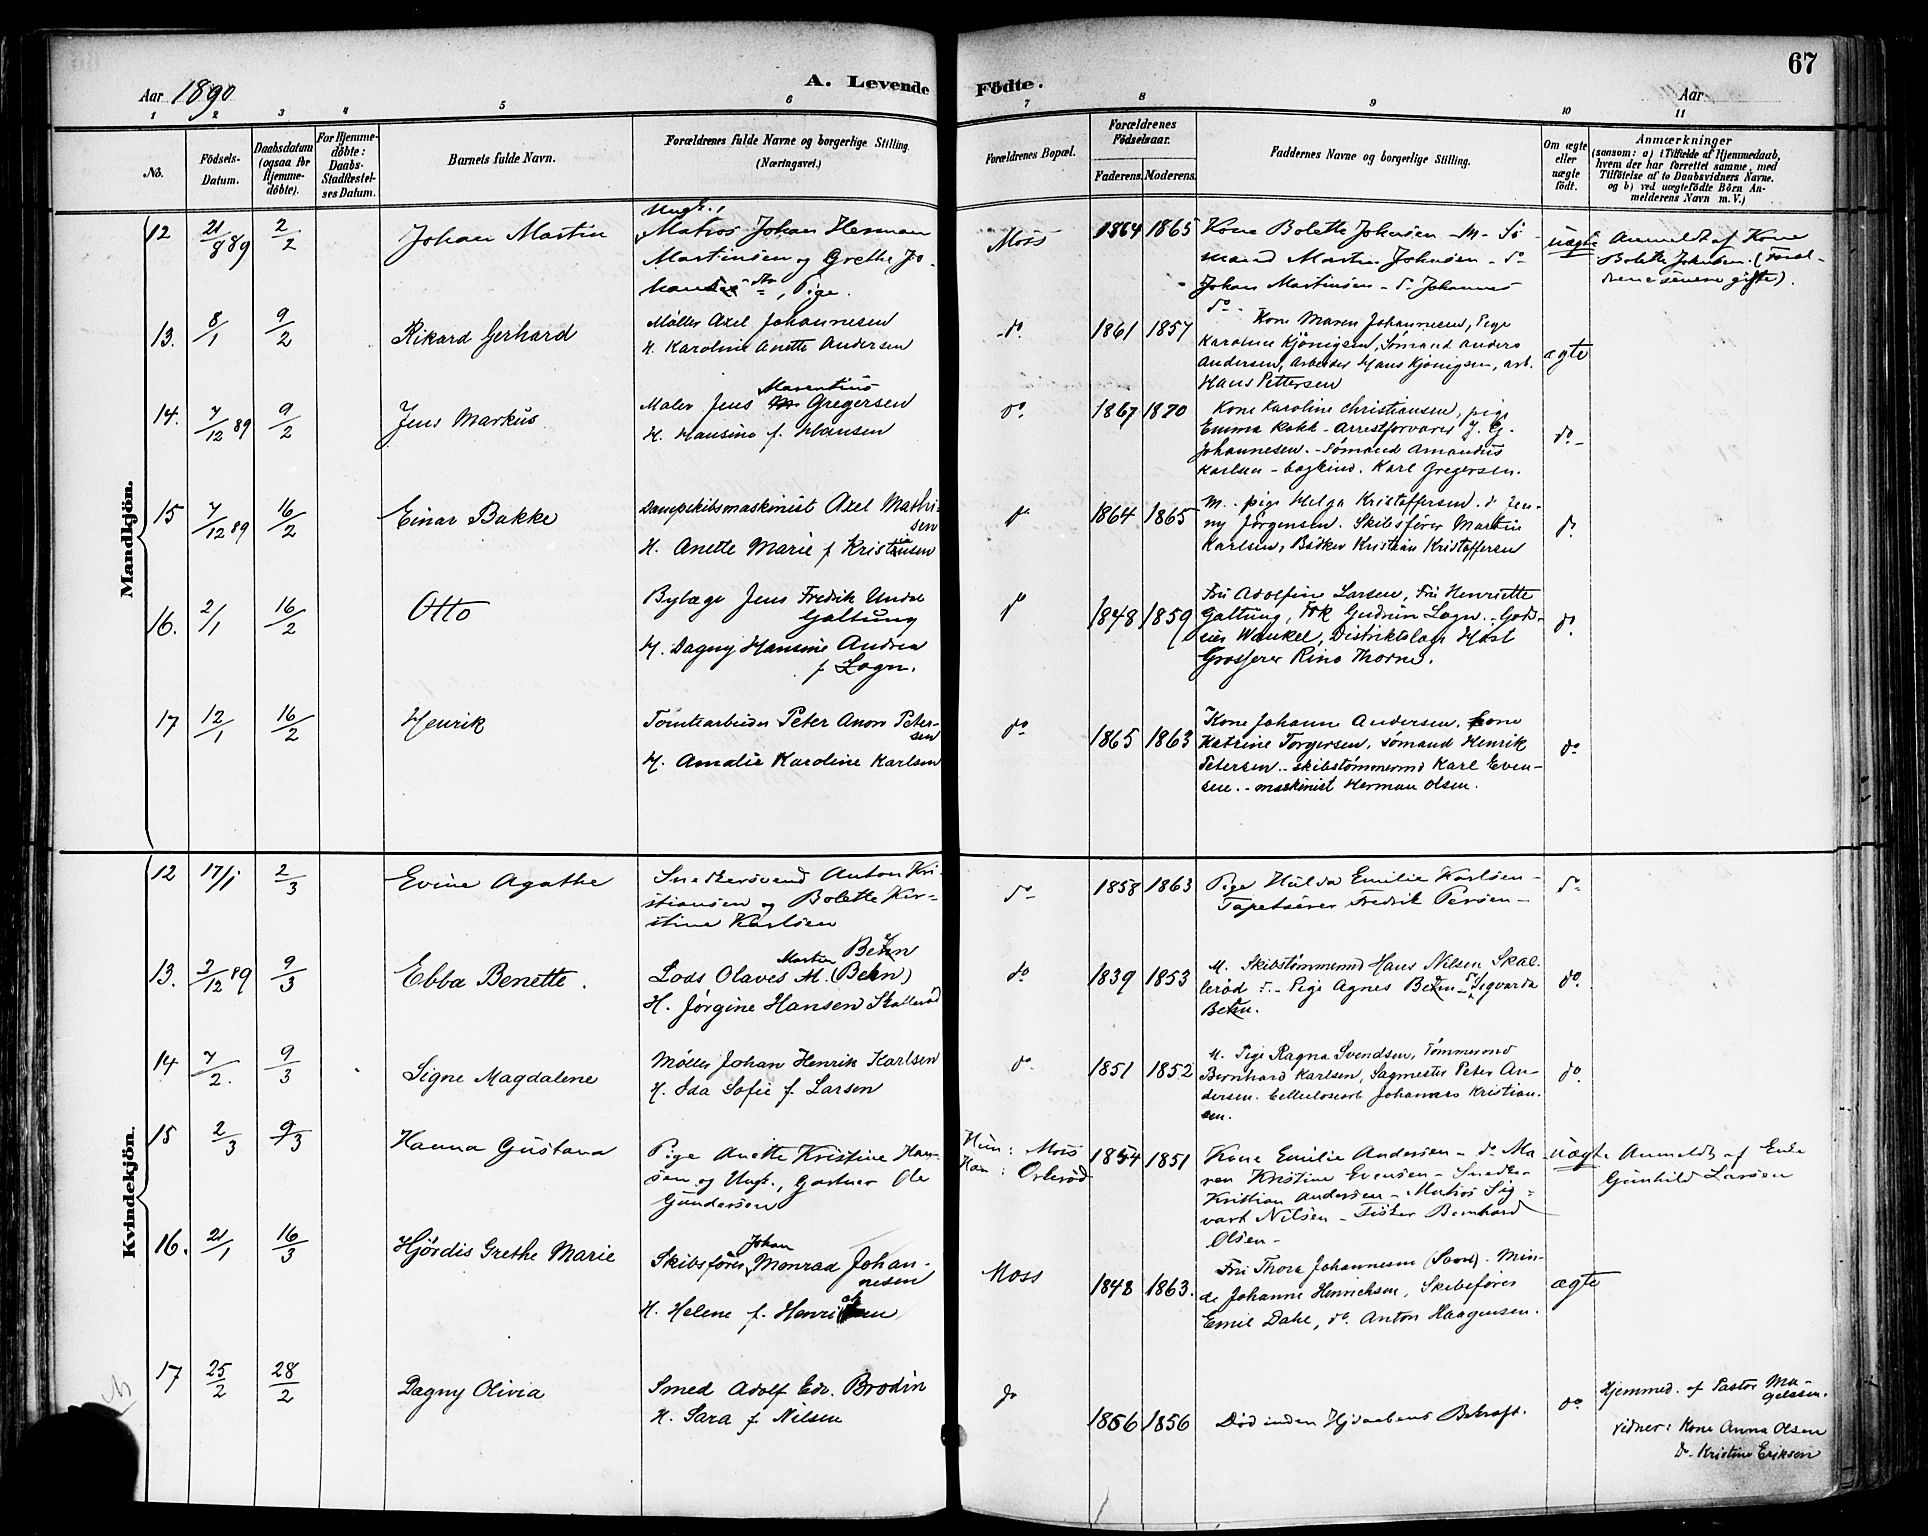 67
Aar 1890
A. Levende Födte.
Aar
1 2 3 4 5 6 7 8 9 10 11
No.
Födsels-
Datum.
Daabsdatum
(ogsaa for
Hjemme-
döbte).
For Hjemme-
döbte:
Daabs-
Stadfæstel-
ses Datum.
Barnets fulde Navn.
Forældrenes fulde Navne og borgerlige Stilling.
(Næringsvei.)
Forældrenes Bopæl.
Forældrenes
Födselsaar.
Faderens. Moderens.
Faddernes Navne og borgerlige Stilling.
Om ægte
eller
uægte
födt.
Anmærkninger
(saasom: a) i Tilfælde af Hjemmedaab,
hvem der har forrettet samme, med
Tilföielse af to Daabsvidners Navne,
og b) ved uægtefödte Börn An-
melderens Navn m. V.)
Mandkjön.
12 21/8 89 2/2 Johan Martin
Ungk.,
Matros Johan Herman
Martinsen og Grethe Jo-
hansen, Pige.
Moss 1864 1865
Kone Bolette Johnsen - M - Sö-
mand Martin Johnsen - do
Johan Martinsen - d. Johannes
do
uægte
Anmeldt af Kone
Bolette Johnsen. (Foræl-
drene senere gifte).
13. 8/1 9/2 Rikard Gerhard
Møller Axel Johannesen
H. Karoline Anette Andersen
do. 1861 1857
Kone Maren Johannesen, Pige
Karoline Kjönigsen, Sømand Anders
Andersen, Arbeider Hans Kjönigsen, arb.
Hans Pettersen
ægte
14. 7/12 89 9/2 Jens Markus
Marentius
Maler Jens Gregersen
H. Hansine f. Hansen
do. 1867 1870
Kone Karoline Christiansen, pige
Emma Kokk - Arrestforvarer J. G.
Johannesen. - Sømand Amandus
Karlsen - bogbind. Karl Gregersen.
do -
15 7/12 89 16/2 Einar Bakke
Dampskibsmaskinist Axel Mathi-
sen
H. Anette Marie f Kristiansen
do 1864 1865
M. - pige Helga Kristoffersen. d Jen-
ny Jørgensen. Skibsfører Martin
Karlsen, Bödker Kristian Kristoffersen
do.
16. 2/1 16/2 Otto
Bylæge Jens Fredrik Unda
Galtung
H. Dagny Hansine Andrea
f Sogn.
do 1848 1859
Fru Adolfine Larsen, Fru Henriette
Galtung, Frk Gudrun Sogn. - God-
eier Wankel, Distriktslæge Høst
Grosserer Rino Thorne.
do.
17 12/1 16/2 Henrik
Tomtearbeider Peter Anon Peter-
sen
H. Amalie Karoline Karlsen
do 1865 1863
Kone Johanne Andersen, Kone
Katrine Torgersen, sømand Henrik
Petersen. - skibstømmermd Karl Even-
sen. - maskinist Herman Olsen.
do
Kvindekjön.
12 17/1 2/3 Evine Agathe
Snedkersvend Anton Kri-
stiansen og Bolette Kri-
stine Karlsen
do 1858 1863
Pige Hulda Emilie Karlsen -
Tapetserer Fredrik Persen -
do
13. 3/12 89 9/3 Ebba Benette.
Martin Behn
Lods Olaves M. (Behn)
H. Jørgine Hansen Skallerød
do 1839 1853
M. Skibstømmermd Hans Nilsen Skal-
lerød d. - Pige Agnes Behn - Sigvarda
Behn.
do.
14 7/2. 9/3 Signe Magdalene
Møller Johan Henrik Karlsen
H. Ida Sofie f. Larsen
do. 1851 1852
M. Pige Ragna Svendsen, Tømmermd
Bernhard Karlsen, Sagmester Peter An-
dersen. Cellulosearb Johannes Kristian-
sen.
do.
15 2/3 9/3 Hanna Gustava
Pige Anette Kristine Han-
sen og Ungk., Gartner Ole
Gundersen
Hun: Moss
Han: Orkerød
1854 1851
Kone Emilie Andersen - do Ma-
ren Kristine Evensen - Snedker
Kristian Andersen - Matros Sig-
vart Nilsen - Fisker Bernhard
Olsen -
uægte
Anmeldt af Enke
Gunhild Larsen
16. 21/1 16/3 Hjørdis Grethe Marie
Johan
Skibsfører Monrad Johan-
nesen
H. Helene f. Henrichsen
Moss 1848 1863.
Fru Thora Johannesen (Soon). Min-
da Johanne Henrichsen, Skibsfører
Emil Dahl, do. Anton Haagensen.
ægte
17 25/2 28/2 Dagny Olivia
Smed Adolf Edv. Brodin
H. Sara f Nilsen
do 1856 1856
Død inden Hjdaabens Bekræft.
do
Hjemmed. af Pastor Ma-
gelssen.
Vidner: Kone Anna Olsen
Do Kristine Eriksen